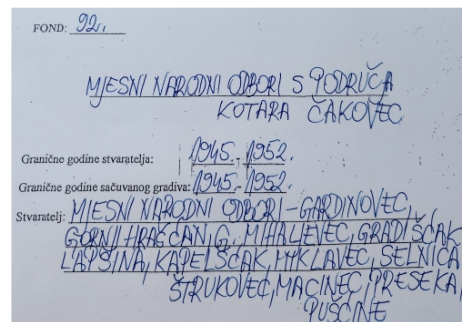 FOND: 92.
MJESNI NARODNI ODBORI S PODRUČA
KOTARA ČAKOVEC
Granične godine stvaratelja: 1945.-1952.
Granične godine sačuvanog gradiva: 1945.-1952.
Stvaratelj: MJESNI NARODNI ODBORI - GARDINOVEC,
GORNJI HRAŠĆAN, G. MIHALJEVEC, GRADIŠČAK
LAPŠINA, KAPELŠČAK, MIKLAVEC, SELNICA
ŠTRUKOVEC, MACINEC, PRESEKA,
PUŠĆINE